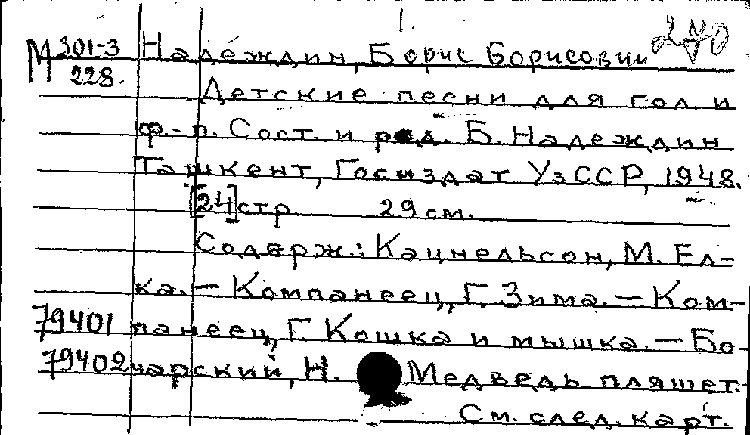 1.
270
М 301-3 Надеждин, Борис Борисович
228. Детские песни для гол и
ф.-п. Сост. и ред. Б. Надеждин
Ташкент, Госиздат УзССР, 1948.
[24] стр 29 см.
Содерж.: Кацнельсон, М. Ел-
ка. — Компанеец, Г. Зима. — Ком-
79401 панеец, Г. Кошка и мышка. — Бо-
79402 чарский, Н. Медведь пляшет.
См. след. карт.